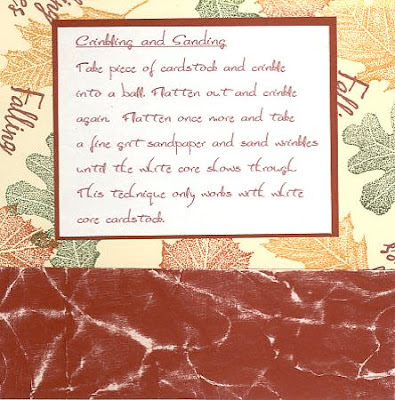 Crinkling and Sanding
Take piece of cardstock and crinkle
into a ball. Flatten out and crinkle
again. Flatten once more and take
a fine grit sandpaper and sand wrinkles
until the white core shows through.
This technique only works with white
core cardstock.
Falling
Fall